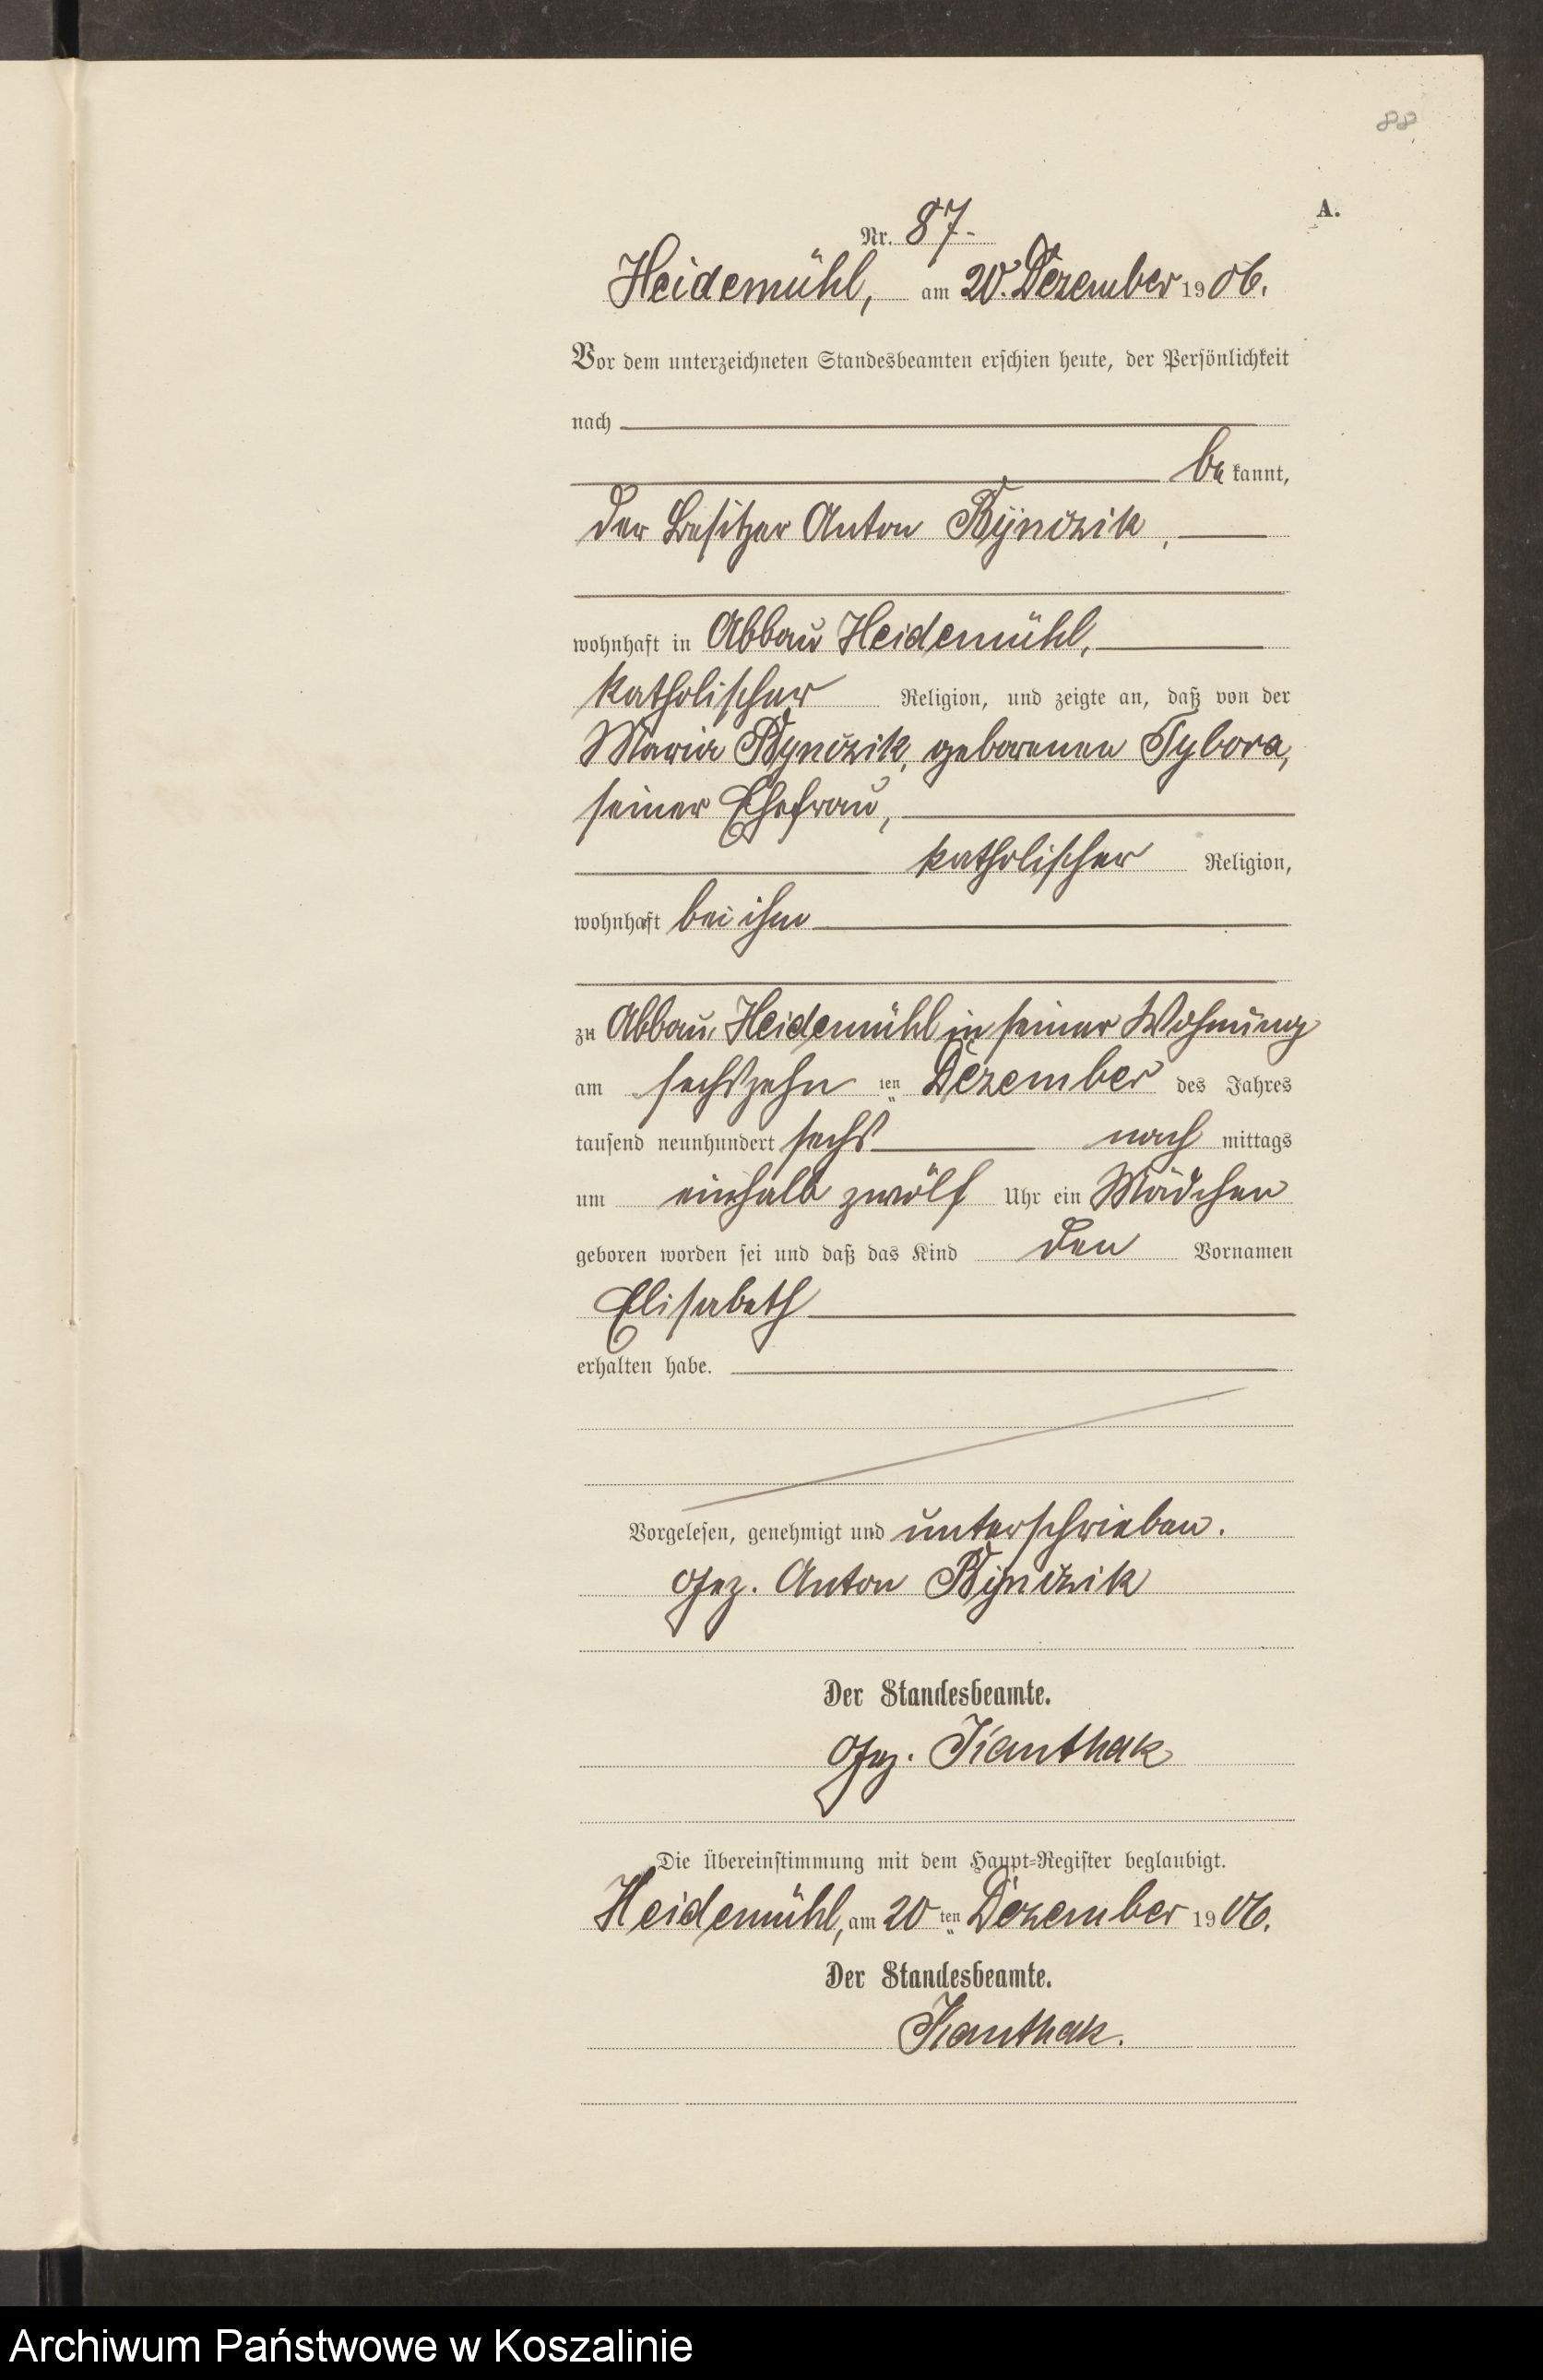 88
A.
Nr. 87.
Heidemühl, am 20. Dezember 1906.
Vor dem unterzeichneten Standesbeamten erschien heute, der Persönlichkeit
nach
be kannt,
der Besitzer Anton
wohnhaft in Abbau Heidemühl,
katholischer Religion, und zeigte an, daß von der
Maria geborenen Tybora,
seiner Ehefrau,
katholischer Religion,
wohnhaft bei ihm
zu Abbau Heidemühl in seiner Wohnung
am sechszehn ten Dezember des Jahres
tausend neunhundert sechs nach mittags
um einhalb zwölf Uhr ein Mädchen
geboren worden sei und daß das Kind den Vornamen
Elisabeth
erhalten habe.
Vorgelesen, genehmigt und unterschrieben.
Gez. Anton
Der Standesbeamte.
Gez. Kanthak
Die Übereinstimmung mit dem Haupt=Register beglaubigt.
Heidemühl, am 20 ten Dezember 1906.
Der Standesbeamte.
Kanthak.
Archiwum Państwowe w Koszalinie